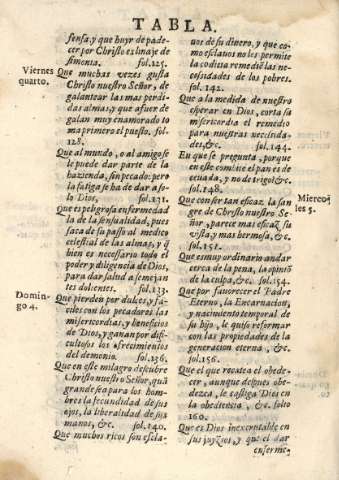 TABLA.
fensa, y que huyr de pade-
cer por Christo es linaje de
simonia. fol.125.
Viernes
quarto.
Que muchas vezes gusta
Christo nuestro Señor, de
galantear las mas perdi-
das almas, y que a fuer de ga-
lan muy enamorado to
ma primero el puesto. fol.
128.
Que al mundo, o al amigo se
le puede dar parte de la
hazienda, sin pecado: pero
la fatiga se ha de dar a so-
la Dios. fol.131.
Que es peligrosa enfermedad
la de la sensualidad, pues
saca de su passo al medico
celestial de las almas, y q̃
bien es necessario todo el
poder y diligencia de Dios,
para dar salud a semejan
tes dolientes. fol.133.
Domin-
go 4.
Que pierden por dulces, y fa-
ciles con los pecadores las
misericordias, y beneficios
de Dios, y ganan por difi-
cultosos los ofrecimientos
del demonio. fol.136.
Que en este milagro descubre
Christo nuestro Señor, quã
grande sea para los hom-
bres la fecundidad de sus
ojos, la liberalidad de sus
manos, &c. fol.140.
Que muchos ricos son escla-
uos de su dinero, y que co-
mo esclauos no les permite
la codicia remediẽ las ne-
cessidades de los pobres.
fol.142.
Que a la medida de nuestro
esperar en Dios, corta su
misericordia el remedio
para nuestras necessida-
des, &c. fol.144.
En que se pregunta, porque
en este combite el pan es de
ceuada, y no de trigo? &c.
fol.148.
Miercoles 5.
Que con ser tan eficaz la san
gre de Christo nuestro Se-
ñor, parece mas eficaz su
vista, y mas hermosa, &c.
fol.151.
Que es muy ordinario andar
cerca de la pena, la opiniõ
de la culpa, &c. fol.154.
Que por fauorecer el Padre
Eterno, la Encarnacion,
y nacimiento temporal de
su hijo, le quiso reformar
con las propiedades de la
generacion eterna, &c.
fol.156.
Que el que recatea el obede-
cer, aunque despues obe-
dezca, le castiga Dios en
la obediencia, &c. folio
160.
Que es Dios inexcrutable en
sus juyzios, y que el dar
enferme-